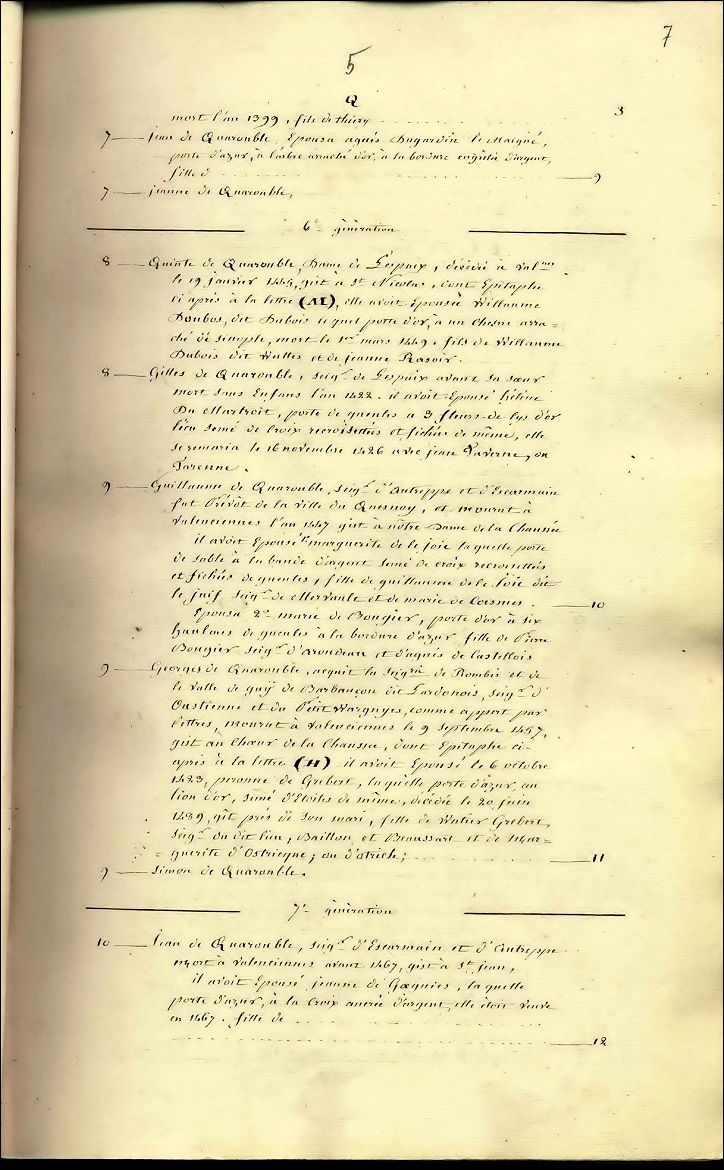 7
5
Q
mort l'an 1399, fils de thiery 3
7 — Jean de Quarouble, Epousa agnés Dugardin le Maigné,
porte d'azur, à l'arbre arraché d'or, à la bordure engrelée d'argent,
fille d 9
7 — jeanne de Quarouble,
6e génération
8 — Quinte de Quarouble, Dame de Lespaix, décédée à Val.nes
le 19 janvier 1445, gist à St Nicolas, dont Epitaphe
ci après à la lettre (M), elle avoit Epousée Willaume
Doubos, dit Dubois le quel porte d'or, à un Chesne arra=
ché de sinople, mort le 1er mars 1449. fils de Willaume
Dubois dit Wattes et de jeanne Rasoir.
8 — Gilles de Quarouble, seigr. de Lespaix avant sa sœur
mort sans Enfans l'an 1422. il avoit Epousé hélène
Du Martroit, porte de gueules a 3 fleurs-de lys d'or
l'écu semé de croix recroisettés et fichés de même, elle
se remaria le 16 novembre 1426 avec jean Vaverne, ou
Varenne.
9 — Guillaume de Quarouble, seigr. d'Autreppe et d'Escarmain
fut Prévôt de la ville du Quesnoy, et mourut à
Valenciennes l'an 1447 gist à nôtre Dame de la Chaussée
il avoit Epousé 1° marguerite de le joie la quelle porte
de sable à la bande d'argent semé de croix recroisettés
et fichés de gueules, fille de guillaume de le Joie dit
le juif seigr. de Mervault et de marie de Coesmes. — 10
Epousa 2° marie de Bougier, porte d'or à six
haulmes de gueules à la bordure d'azur fille de Pierre
Bougier seigr. d'Arondeau et d'agnés de Castellois
9 — Georges de Quarouble, acquit la seigrie de Rombis et de
le Valle de guÿ de Barbançon dit Lardenois, seigr. d'
Oustienne et du Petit Wargnyes, comme appert par
lettres, mourut à Valenciennes le 9 septembre 1457,
gist au Chœur de la Chaussée, dont Epitaphe ci-
après à la lettre (H) il avoit Epousé le 6 octobre
1423, peronne de Grebert, laquelle porte d'azur, au
lion d'or, semé d'Etoiles de même, décédée le 20 juin
1439, gît prés de son mari, fille de Watier Grebert,
seigr. du dit lieu, Baillon et Beaussart et de Mar=
=guerite d'Ostricque, ou d'ostrich; — 11
9 — Simon de Quarouble.
7e génération
10 — Jean de Quarouble, seigr. d'Escarmain et d'Autreppe
mort à Valenciennes avant 1467, gist à St. jean,
il avoit Epousé jeanne de Gœgnies, la quelle
porte d'azur, à la Croix ancrée d'argent, elle étoit veuve
en 1467. fille de
— 12